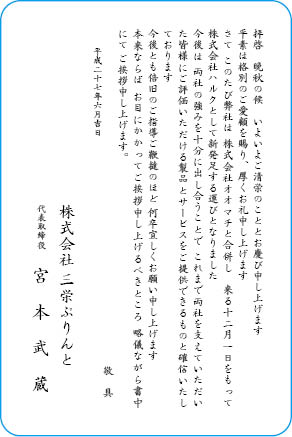 拝啓　晩秋の候　いよいよご清栄のこととお慶び申し上げます
平素は格別のご愛顧を賜り、厚くお礼申し上げます
さて　このたび弊社は　株式会社オオマチと合併し　来る十二月一日をもって
株式会社ハルクとして新発足する運びとなりました
今後は　両社の強みを十分に出し合うことで　これまで両社を支えていただい
た皆様にご評価いただける製品とサービスをご提供できるものと確信いたし
ております
今後とも倍旧のご指導ご鞭撻のほど　何卒宜しくお願い申し上げます
本来ならば　お目にかかってご挨拶申し上げるべきところ　略儀ながら書中
にてご挨拶申し上げます。
敬具
平成二十七年六月吉日
株式会社　三栄ぷりんと
代表取締役　宮本武蔵